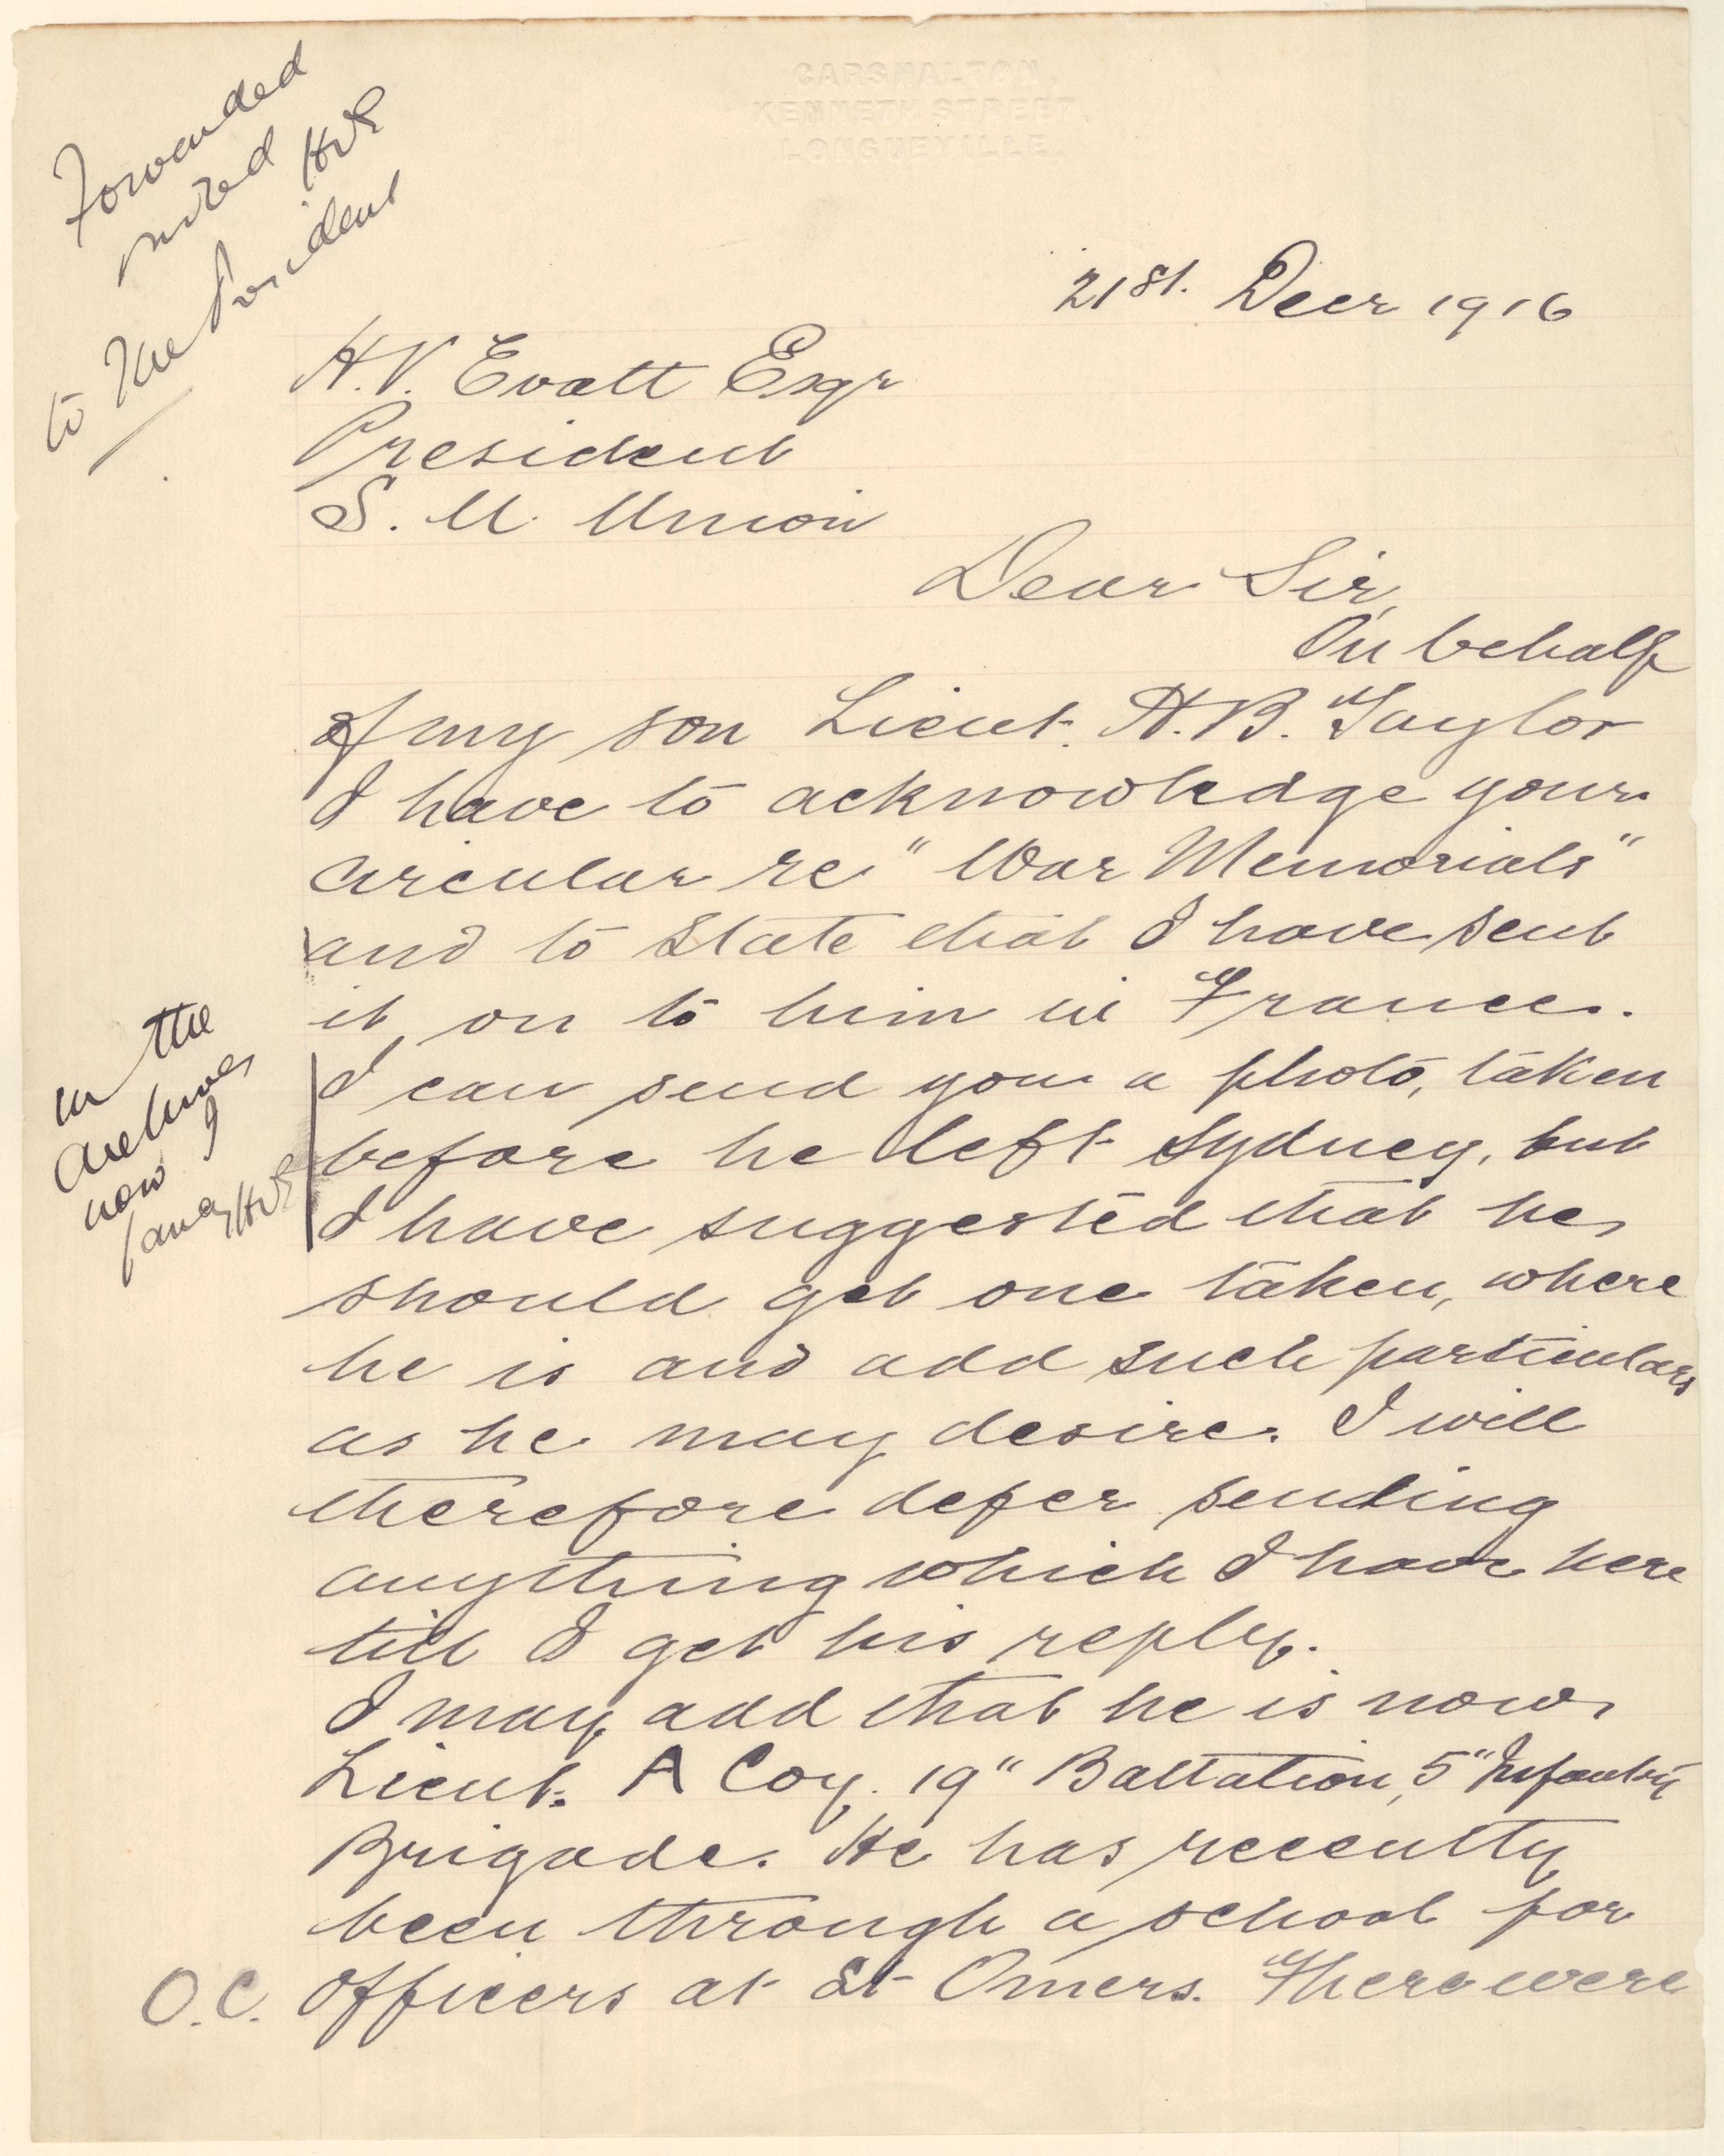 CARSHALTON,
KENNETH STREET
LONGUEVILLE.
Forwarded
noted HVE
to the President
21st. Decr 1916
H. V. Evatt Esqr
President
S. U. Union
Dear Sir,
On behalf
of my son Lieut. H. B. Taylor
I have to acknowledge your
circular re "War Memorials"
and to state that I have sent
it on to him in France.
I can send you a photo, taken
before he left Sydney, but
I have suggested that he
should get one taken, where
he is and add such particulars
as he may desire. I will
therefore defer sending
anything which I have here
till I get his reply.
I may add that he is now
Lieut. A Coy. 19" Battalion, 5" Infantry
Brigade. He has recently
been through a school for
O.C. Officers at St Omers. There were
in the
Archives
now I
fancy HVE